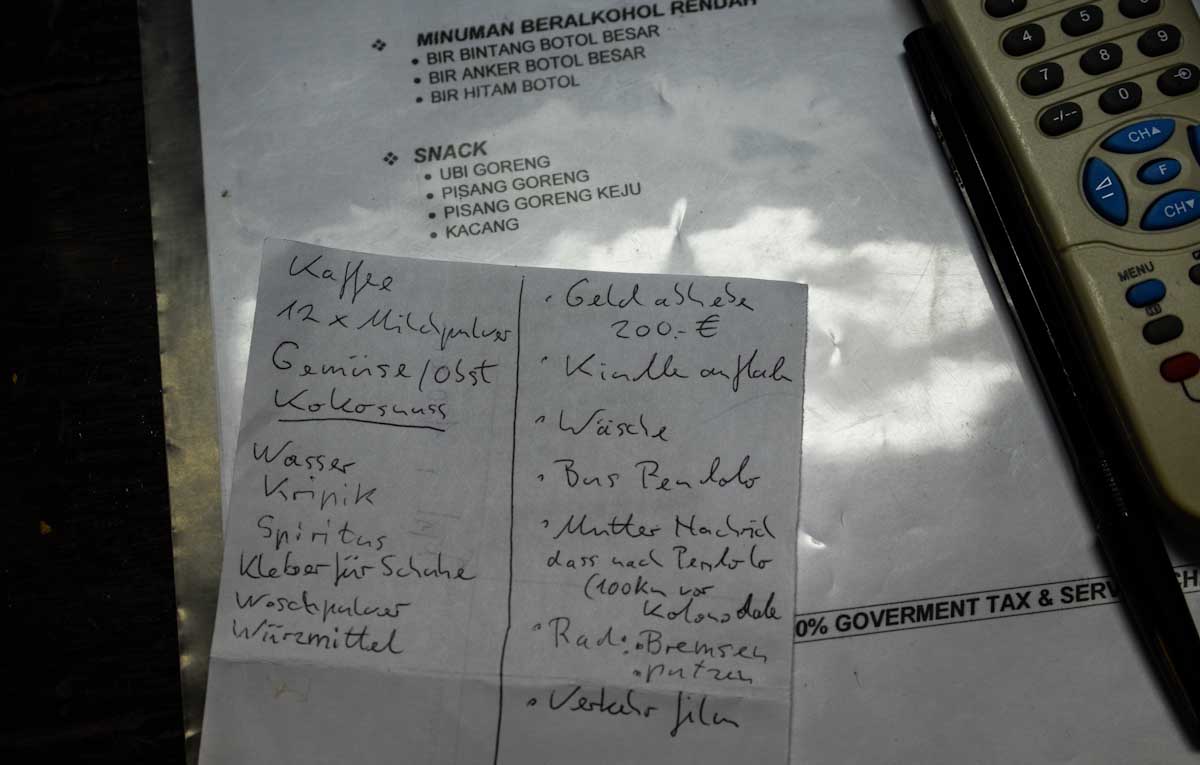 ❖ MINUMAN BERALKOHOL RENDAH
• BIR BINTANG BOTOL BESAR
• BIR ANKER BOTOL BESAR
• BIR HITAM BOTOL
❖ SNACK
• UBI GORENG
• PISANG GORENG
• PISANG GORENG KEJU
• KACANG
Kaffee
12 x Milchpulver
Gemüse/Obst
Kokosnuss
Wasser
Kripik
Spiritus
Kleber für Schuhe
Waschpulver
Würzmittel
• Geld abhebe
200.- €
• Kindle
• Wäsche
• Bus Pendolo
• Mutter Nachrich
dass nach Pendolo
(100km vor
Kolonodale
• Rad: • Bremsen
• putzen
• Verkehr film
0% GOVERMENT TAX & SERV
4
5
7
8
9
-/--
0
CH▲
F
CH▼
MENU